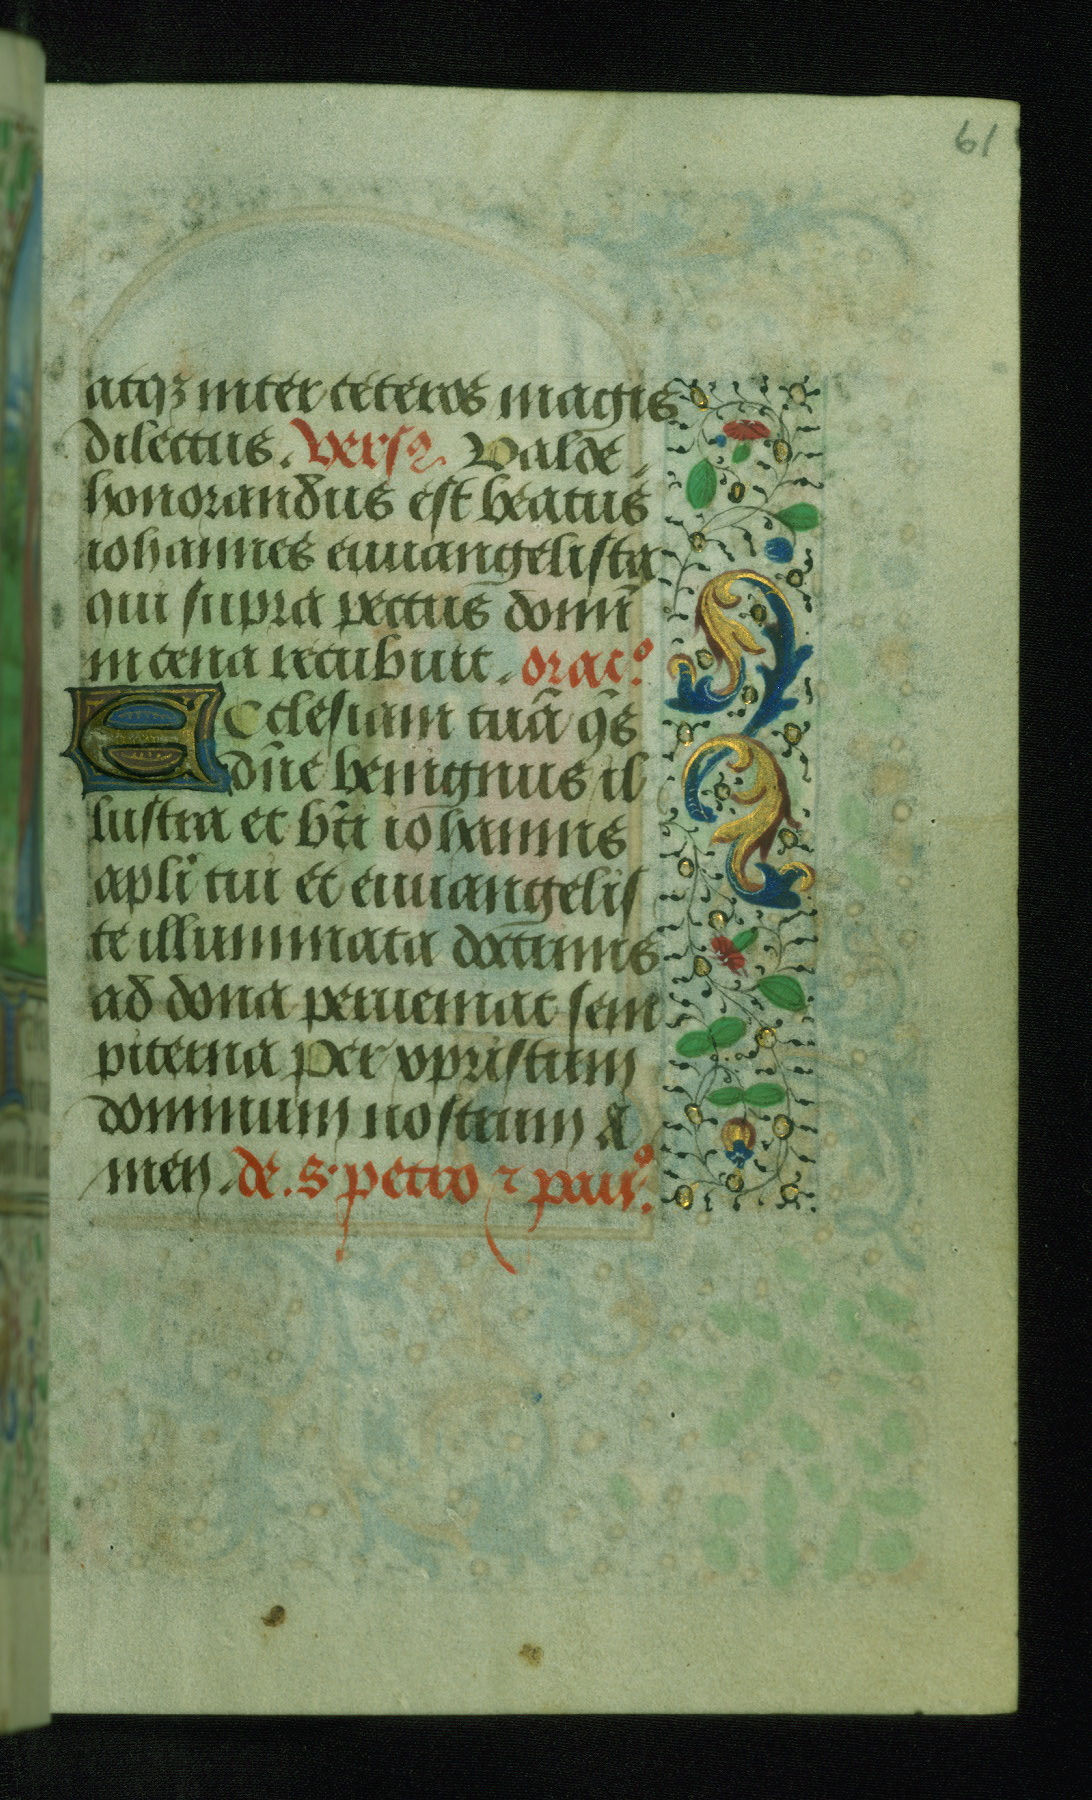 61
atqꝫ inter ceteros magis
dilectus. Versꝰ. Valde.
honorandus est beatus
iohannes euuangelista
qui supra pectus domī
in cena recubuit. orac°.
Ecclesiam tuā q̄s
dn̄e benignus il
lustra et bt̄i iohannis
apl̄i tui et euuangelis
te illuminata doctrinis
ad dona perueniat sem
piterna Per xpristum
dominum nostrum A
men. de. S. petro ⁊ paul°.